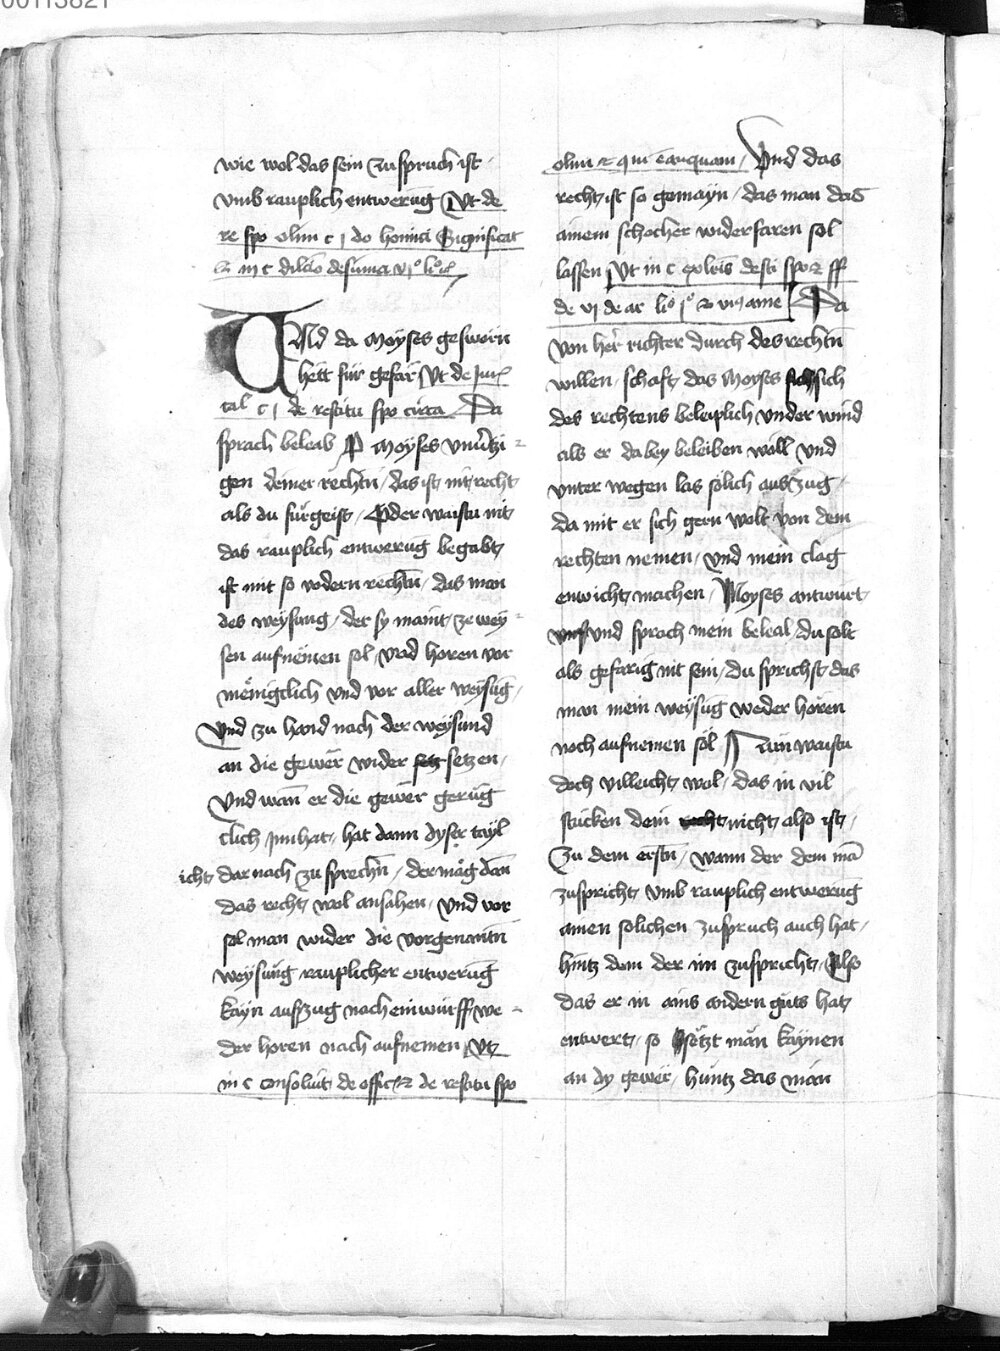 00113821
wie wol das sein zuspruch ist
vmb rauplich entwerūg Vt de
re spo olim c j do homini Significat
⁊ in c dilcō de suma vjº liº
Und da Moyses gesworn
hett für gefär Vt de Jur
tal c j de restitu spo circa Da
sprach beleab Moyses
gen deiner rechtn das ist nit recht
als du fürgeist Oder waistu nit
das rauplich entwerūg begabt
ist mit so vodern rechtn das man
des weysung der sy maint ze wey
sen aufnemen sol vnd horen vor
mēnigclich vnd vor aller weysūg
Vnd zu hand nach der weysund
an die gewer wider setz setzen
Vnd wān er die gewer gerūg
clich Jnnhat hat dann dyser tayl
icht dar nach zu sprechn der mag dān
das recht wol ansahen Vnd vor
sol man wider die vorgenantn
weysūng rauplicher entwerūg
kayn aufzug noch einwurff we
der horen noch aufnemen Vt
in c consoluit de offic ⁊ de restitu spo
olim ⁊ qm tanquam Vnd das
recht ist so gemayn das man das
ainem schocher widerfaren sol
lassen Vt in c de sti spo ⁊ ff
de vj de ar liº jº ⁊ Da
von her richter durch des rechtn
willen schaft das Moyses sich
des rechtens beleiplich vnder wind
als er da bey beleiben woll vnd
vnter wegen las solich auszug
da mit er sich gern wolt von dem
rechten nemen vnd mein clag
entwicht machen Moyses antwurt
vnd sprach mein beleal du solt
als gefarig nit sein du sprichst das
man mein weysūg weder hören
noch aufnemen sol Nun waistu
doch villeicht wol das in vil
stucken dem recht nicht also ist
Zu dem erstn wann der dem mā
zuspricht vmb rauplich entwerūg
ainen solichen zuspruch auch hat
hintz dem der im zuspricht Also
das er in ains andern guts hat
entwert so setzt man kaynen
an dy gewer huntz das man